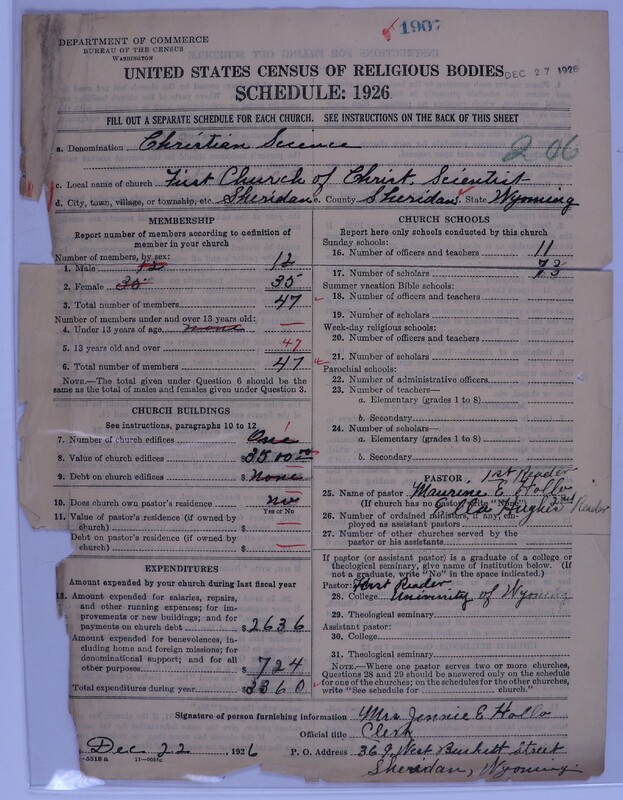 1907
DEPARTMENT OF COMMERCE
BUREAU OF THE CENSUS
WASHINGTON
UNITED STATES CENSUS OF RELIGIOUS BODIES
DEC 27 1926
SCHEDULE: 1926
FILL OUT A SEPARATE SCHEDULE FOR EACH CHURCH. SEE INSTRUCTIONS ON THE BACK OF THIS SHEET
a. Denomination Christian Science
206
c. Local name of church First Church of Christ, Scientist
d. City, town, village, or township, etc. Sheridan e. County Sheridan f. State Wyoming
MEMBERSHIP
Report number of members according to definition of
member in your church
Number of members, by sex:
1. Male 12 12
2. Female 35 35
3. Total number of members 47
Number of members under and over 13 years old:
4. Under 13 years of age none —
5. 13 years old and over 47
6. Total number of members 47
NOTE.—The total given under Question 6 should be the
same as the total of males and females given under Question 3.
CHURCH BUILDINGS
See instructions, paragraphs 10 to 12
1
7. Number of church edifices One
8. Value of church edifices $3500.00
9. Debt on church edifices $None
10. Does church own pastor's residence? no
Yes or No
11. Value of pastor's residence (if owned by
church) $ —
Debt on pastor's residence (if owned by
church) $ —
EXPENDITURES
Amount expended by your church during last fiscal year
Amount expended for salaries, repairs,
and other running expenses; for im-
provements or new buildings; and for
payments on church debt $2636
Amount expended for benevolences, in-
cluding home and foreign missions; for
denominational support; and for all
other purposes $724
Total expenditures during year $3360
CHURCH SCHOOLS
Report here only schools conducted by this church
Sunday schools:
16. Number of officers and teachers 11
17. Number of scholars 73
Summer vacation Bible schools:
18. Number of officers and teachers
19. Number of scholars
Week-day religious schools:
20. Number of officers and teachers
21. Number of scholars
Parochial schools:
22. Number of administrative officers
23. Number of teachers—
a. Elementary (grades 1 to 8)
b. Secondary
24. Number of scholars—
a. Elementary (grades 1 to 8)
b. Secondary
PASTOR 1st Reader
25. Name of pastor Maurine E. Hollo
(If church has no pastor, write "No") Hughes 2nd Reader
26. Number of ordained ministers, if any, em-
ployed as assistant pastors
27. Number of other churches served by the
pastor or his assistants
If pastor (or assistant pastor) is a graduate of a college or
theological seminary, give name of institution below. (If
not a graduate, write "No" in the space indicated.)
Pastor: First Reader
28. College University of Wyoming
29. Theological seminary
Assistant pastor:
30. College
31. Theological seminary
NOTE.—Where one pastor serves two or more churches,
Questions 28 and 29 should be answered only on the schedule
for one of the churches; on the schedules for the other churches,
write "See schedule for church."
Signature of person furnishing information Mrs Jennie E Hollo
Official title Clerk
Dec 22, 1926 P. O. Address 369 West Burkett Street
Sheridan, Wyoming.
-5518a 11—0086c